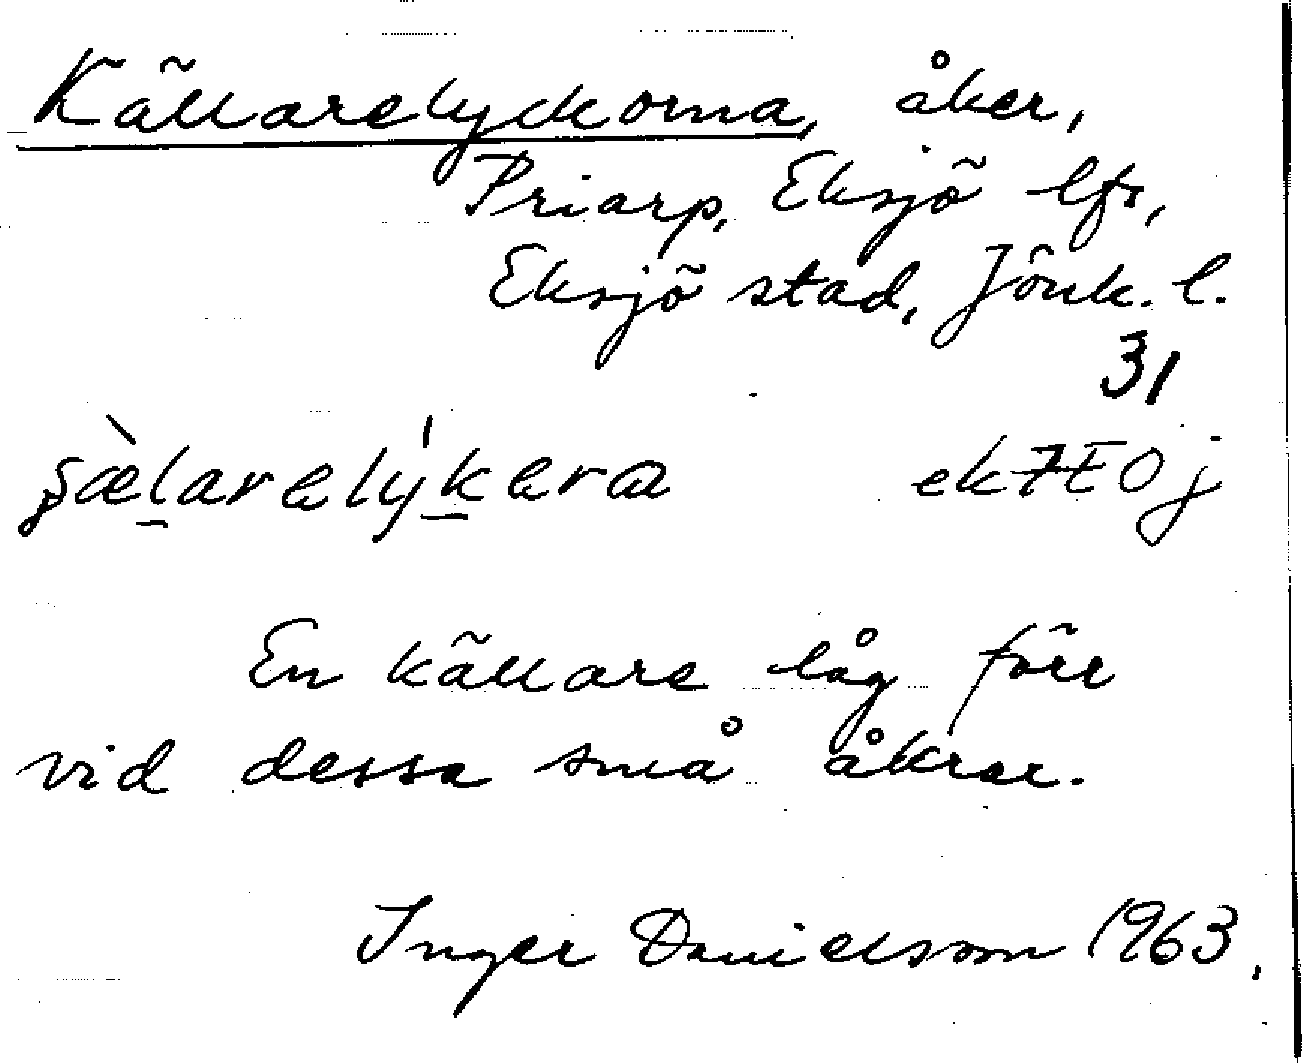 Källarelyckorna, åker,
Priarp, Eksjö lfs,
Eksjö stad, Jönk. l.
31
ek7E0j
En källare låg förr
vid dessa små åkrar.
Inger Danielsson 1963.